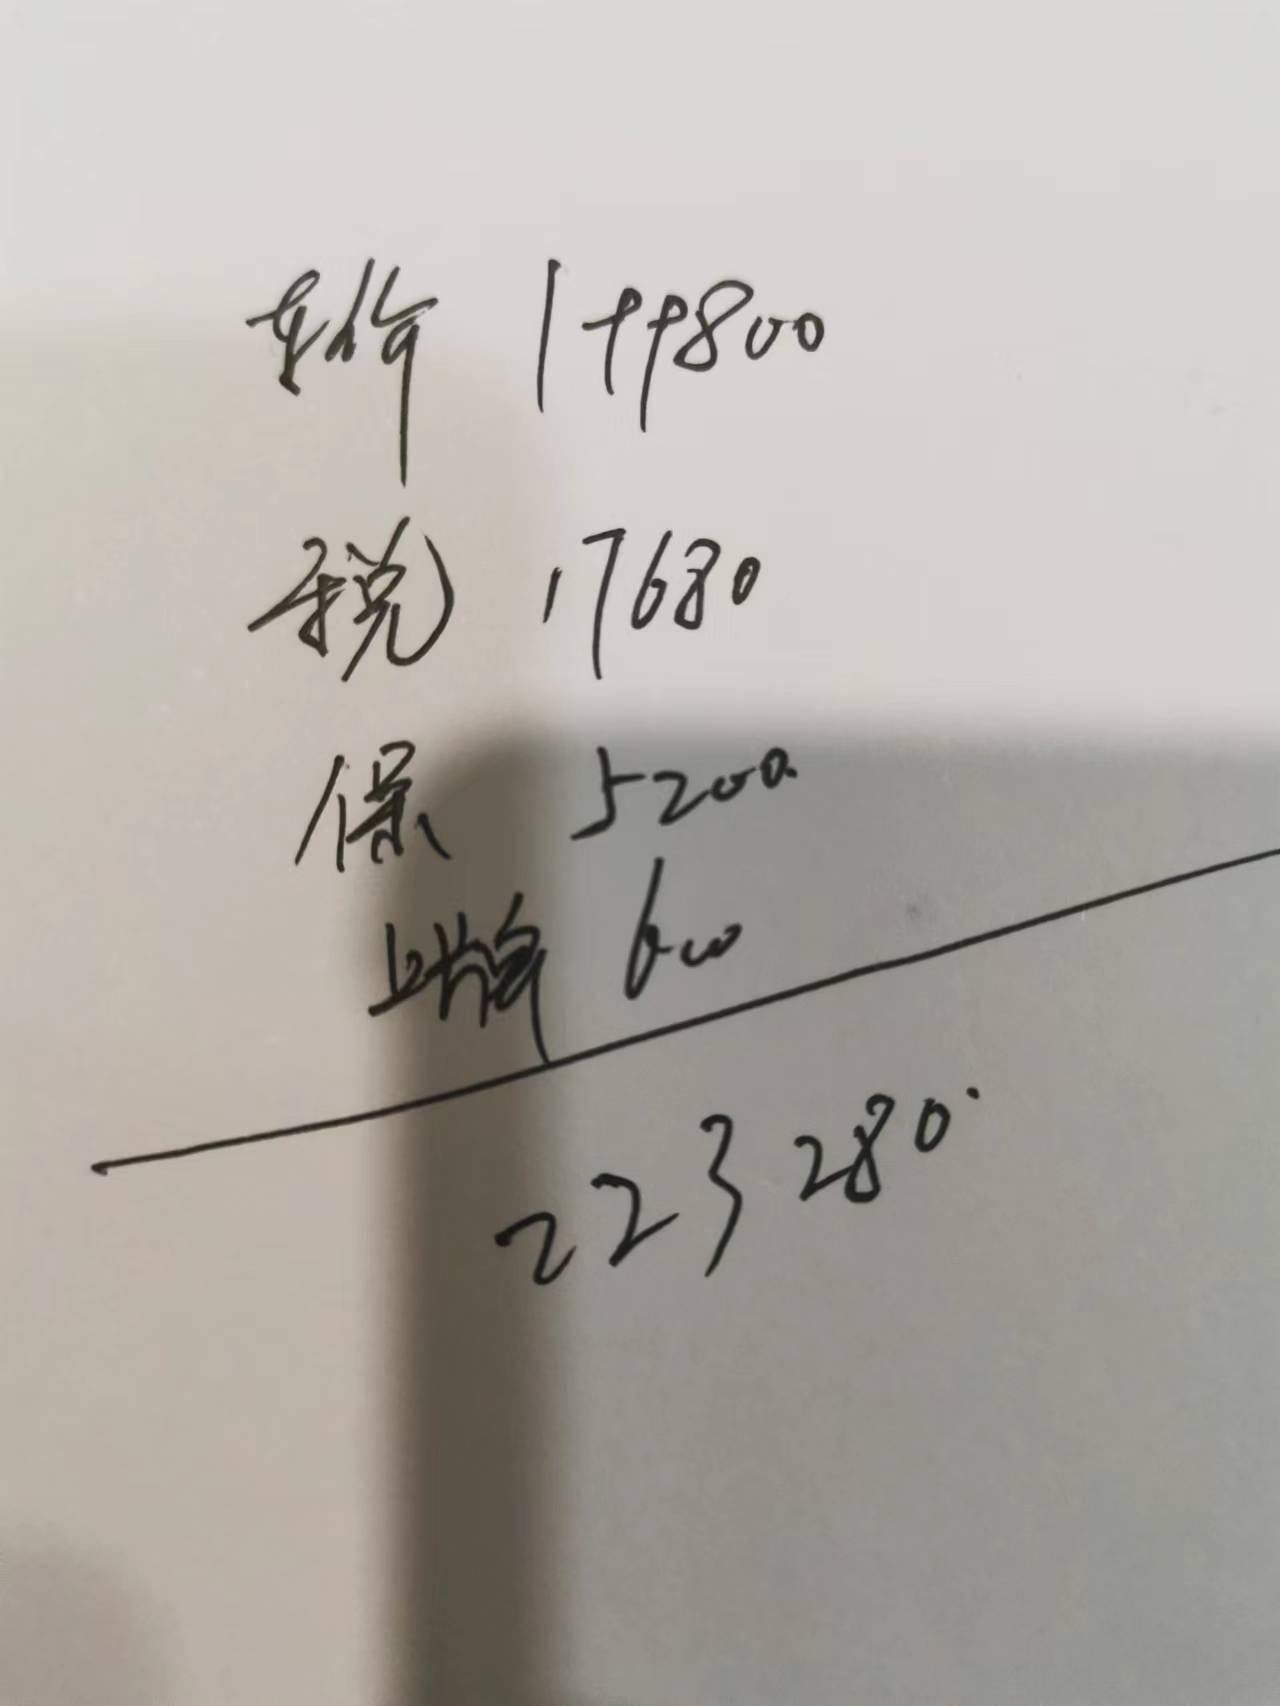 车价 199800
税 17680
保 5200
上牌 600
223280